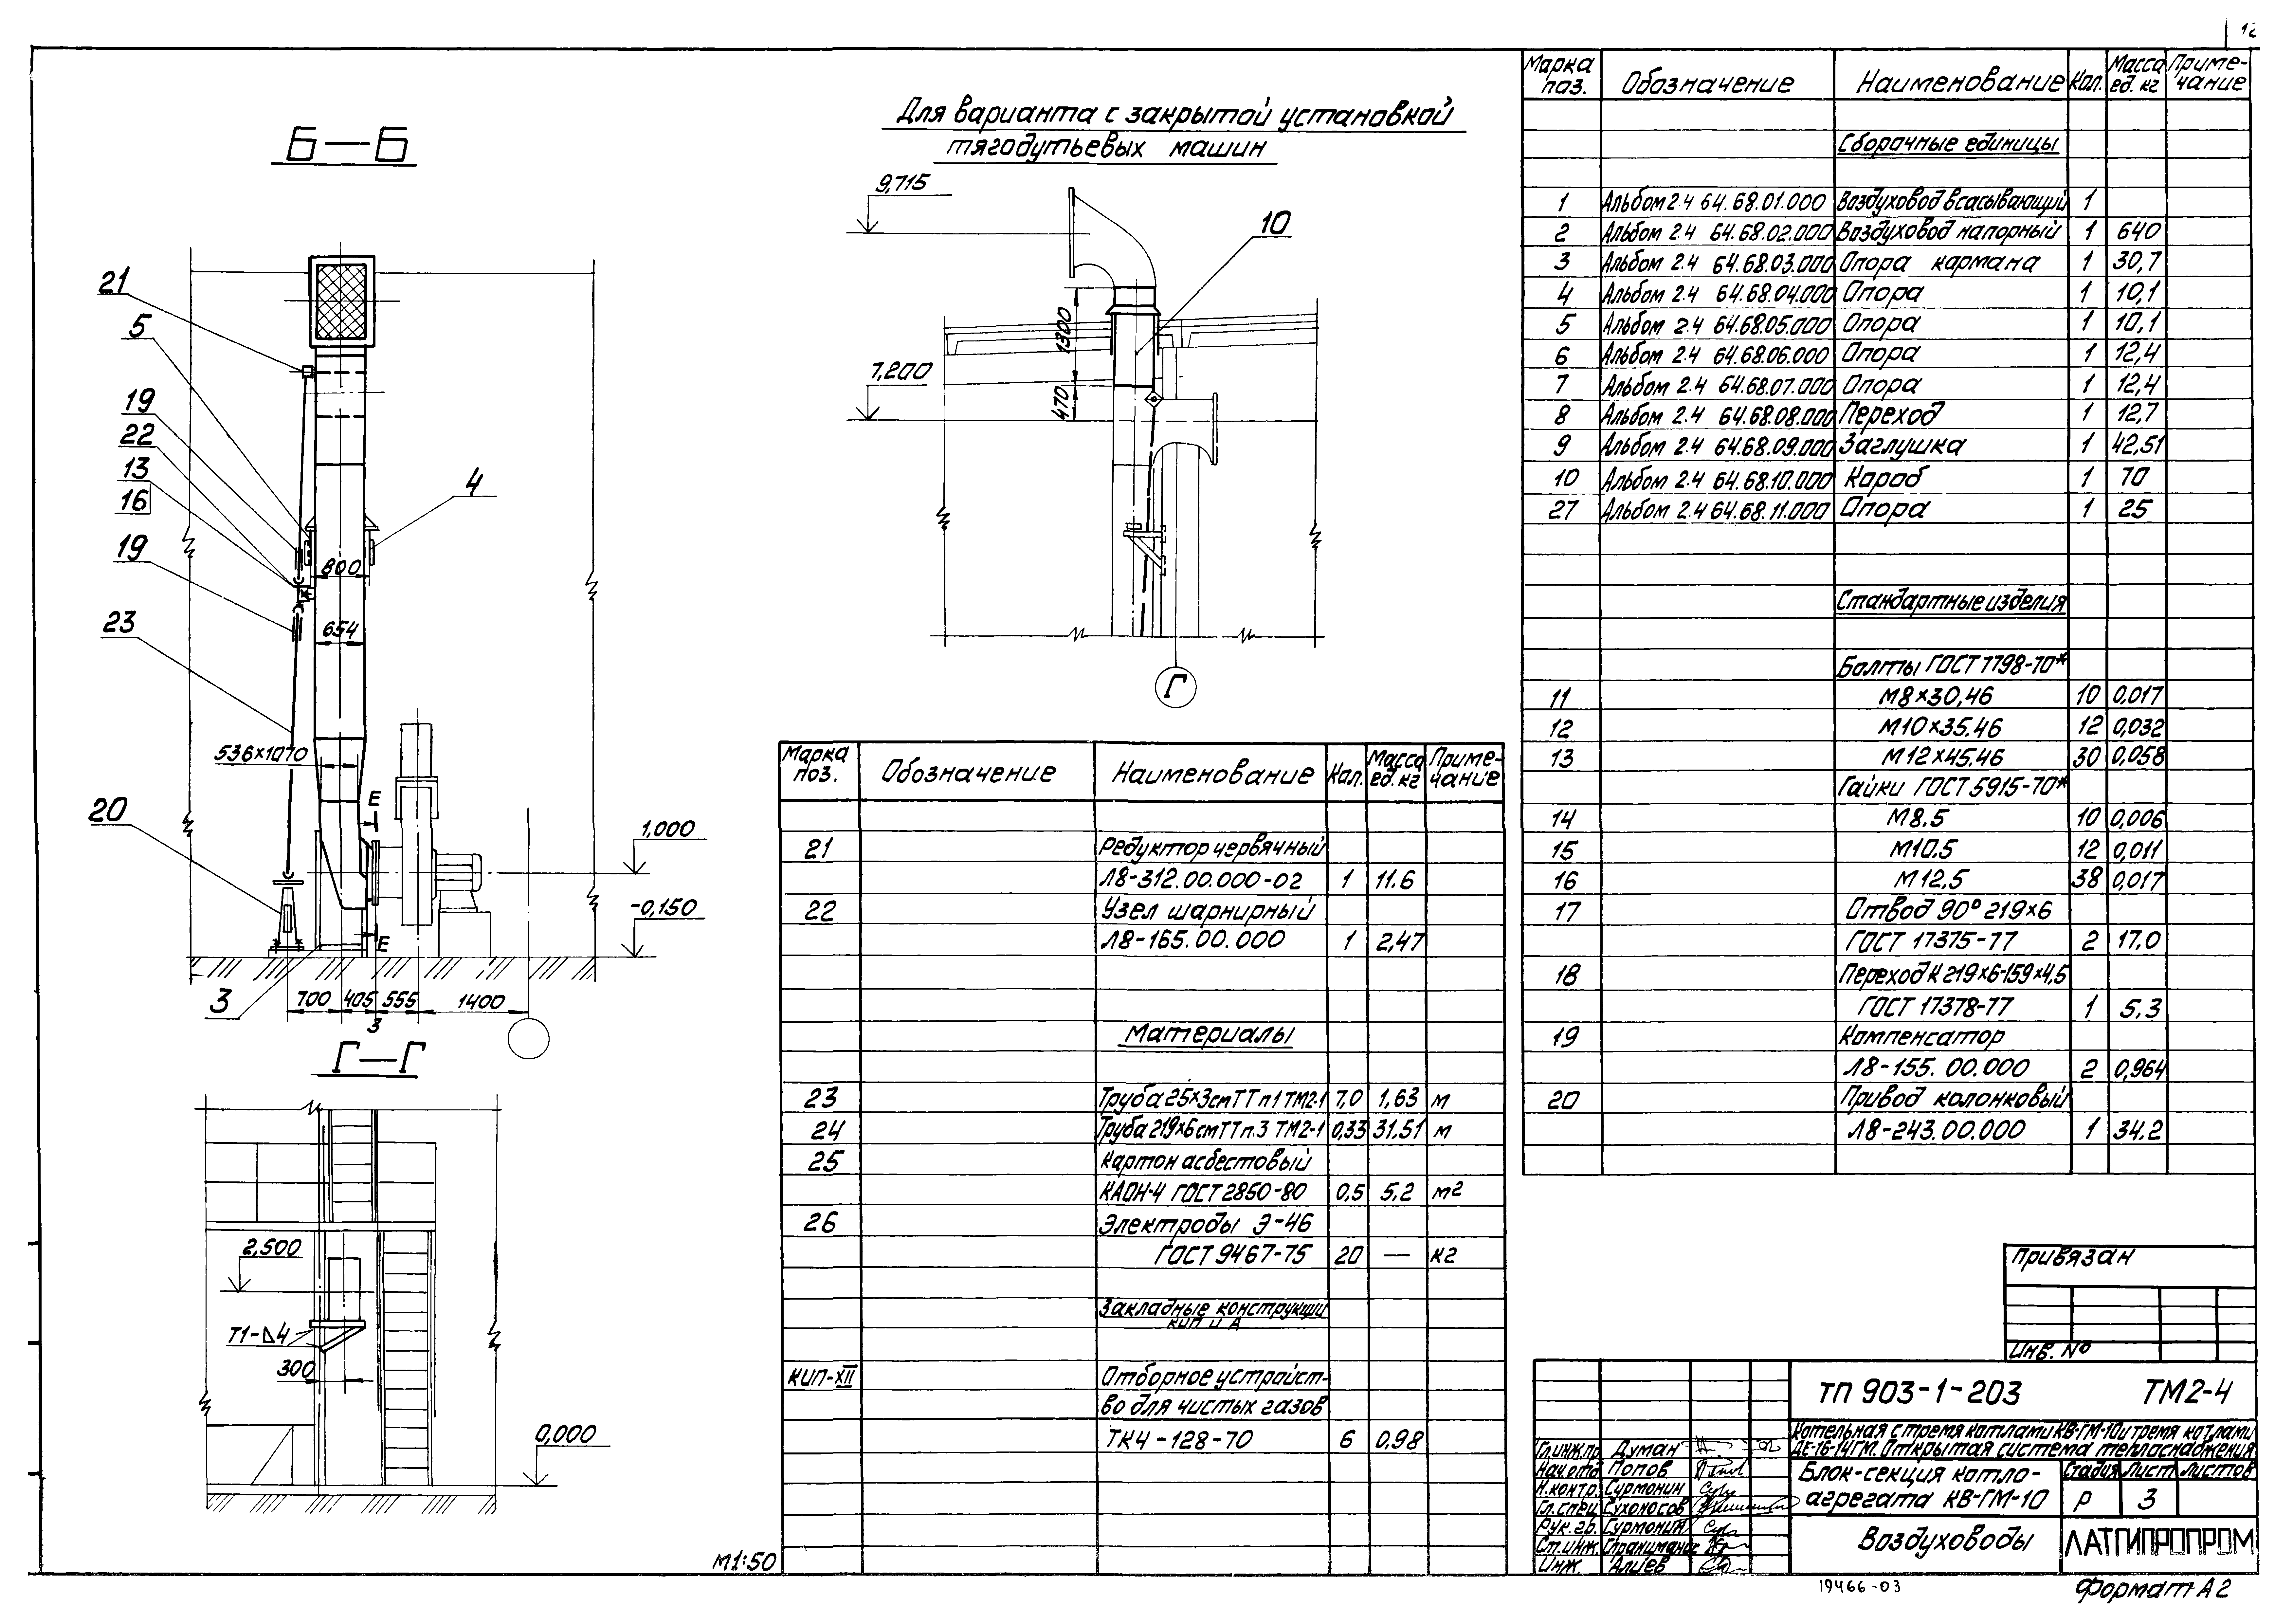 12
Б—Б
21
5
19
22
13
16
19
23
20
3
4
800
654
536×1070
Е
Е
1,000
-0,150
700 405 555 1400
3
Г—Г
2,500
Т1-Δ4
300
0,000
Для варианта с закрытой установкой
тягодутьевых машин
9,715
7,200
1300
470
10
Г
Марка поз. Обозначение Наименование Кол. Масса ед. кг Приме-чание
21 Редуктор червячный
Л8-312.00.000-02 1 11.6
22 Узел шарнирный
Л8-165.00.000 1 2,47
Материалы
23 Труба 25×3 см ТТ п1 ТМ2-1 7,0 1,63 м
24 Труба 219×6 см ТТ п.3 ТМ2-1 0,33 31,51 м
25 Картон асбестовый
КАОН-4 ГОСТ 2850-80 0,5 5,2 м2
26 Электроды Э-46
ГОСТ 9467-75 20 — кг
Закладные конструкции
КИП и А
КИП-XII Отборное устройст-
во для чистых газов
ТК4-128-70 6 0,98
М1:50
Марка поз. Обозначение Наименование Кол. Масса ед. кг Приме-чание
Сборочные единицы
1 Альбом 2.4 64.68.01.000 Воздуховод всасывающий 1
2 Альбом 2.4 64.68.02.000 Воздуховод напорный 1 640
3 Альбом 2.4 64.68.03.000 Опора кармана 1 30,7
4 Альбом 2.4 64.68.04.000 Опора 1 10,1
5 Альбом 2.4 64.68.05.000 Опора 1 10,1
6 Альбом 2.4 64.68.06.000 Опора 1 12,4
7 Альбом 2.4 64.68.07.000 Опора 1 12,4
8 Альбом 2.4 64.68.08.000 Переход 1 12,7
9 Альбом 2.4 64.68.09.000 Заглушка 1 42,51
10 Альбом 2.4 64.68.10.000 Короб 1 70
27 Альбом 2.4 64.68.11.000 Опора 1 25
Стандартные изделия
Болты ГОСТ 7798-70*
11 М8×30,46 10 0,017
12 М10×35.46 12 0,032
13 М12×45.46 30 0,058
Гайки ГОСТ 5915-70*
14 М8.5 10 0,006
15 М10.5 12 0,011
16 М12.5 38 0,017
17 Отвод 90° 219×6
ГОСТ 17375-77 2 17,0
18 Переход К 219×6-159×4,5
ГОСТ 17378-77 1 5,3
19 Компенсатор
Л8-155.00.000 2 0,964
20 Привод колонковый
Л8-243.00.000 1 34.2
Привязан
Инв. №
ТП 903-1-203 ТМ2-4
Котельная с тремя котлами КВ-ГМ-10 и тремя котлами
ДЕ-16-14ГМ. Открытая система теплоснабжения
Гл.инж.пр. Думан
Нач.отд Попов
Н.контр. Сурмонин
Гл.спец. Сухоносов
Рук.гр. Сурмонин
Ст.инж.
Инж. Алиев
Блок-секция котло-
агрегата КВ-ГМ-10
Стадия Лист Листов
Р 3
Воздуховоды
ЛАТГИПРОПРОМ
19466-03
Формат А2